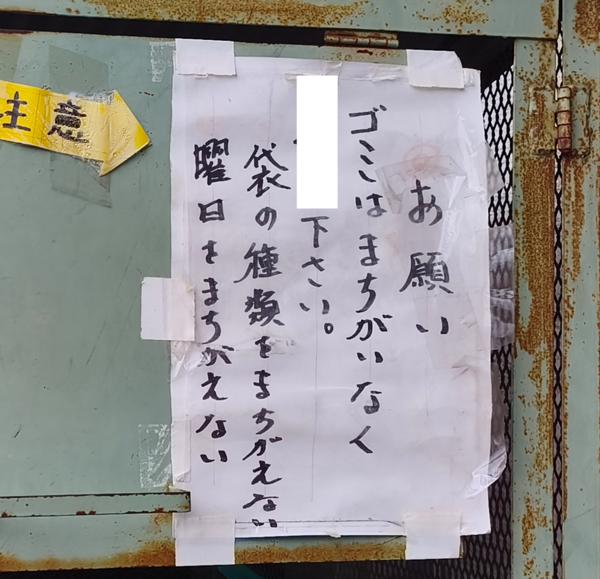 お願い
ゴミはまちがいなく
下さい。
袋の種類をまちがえない
曜日をまちがえない
注意